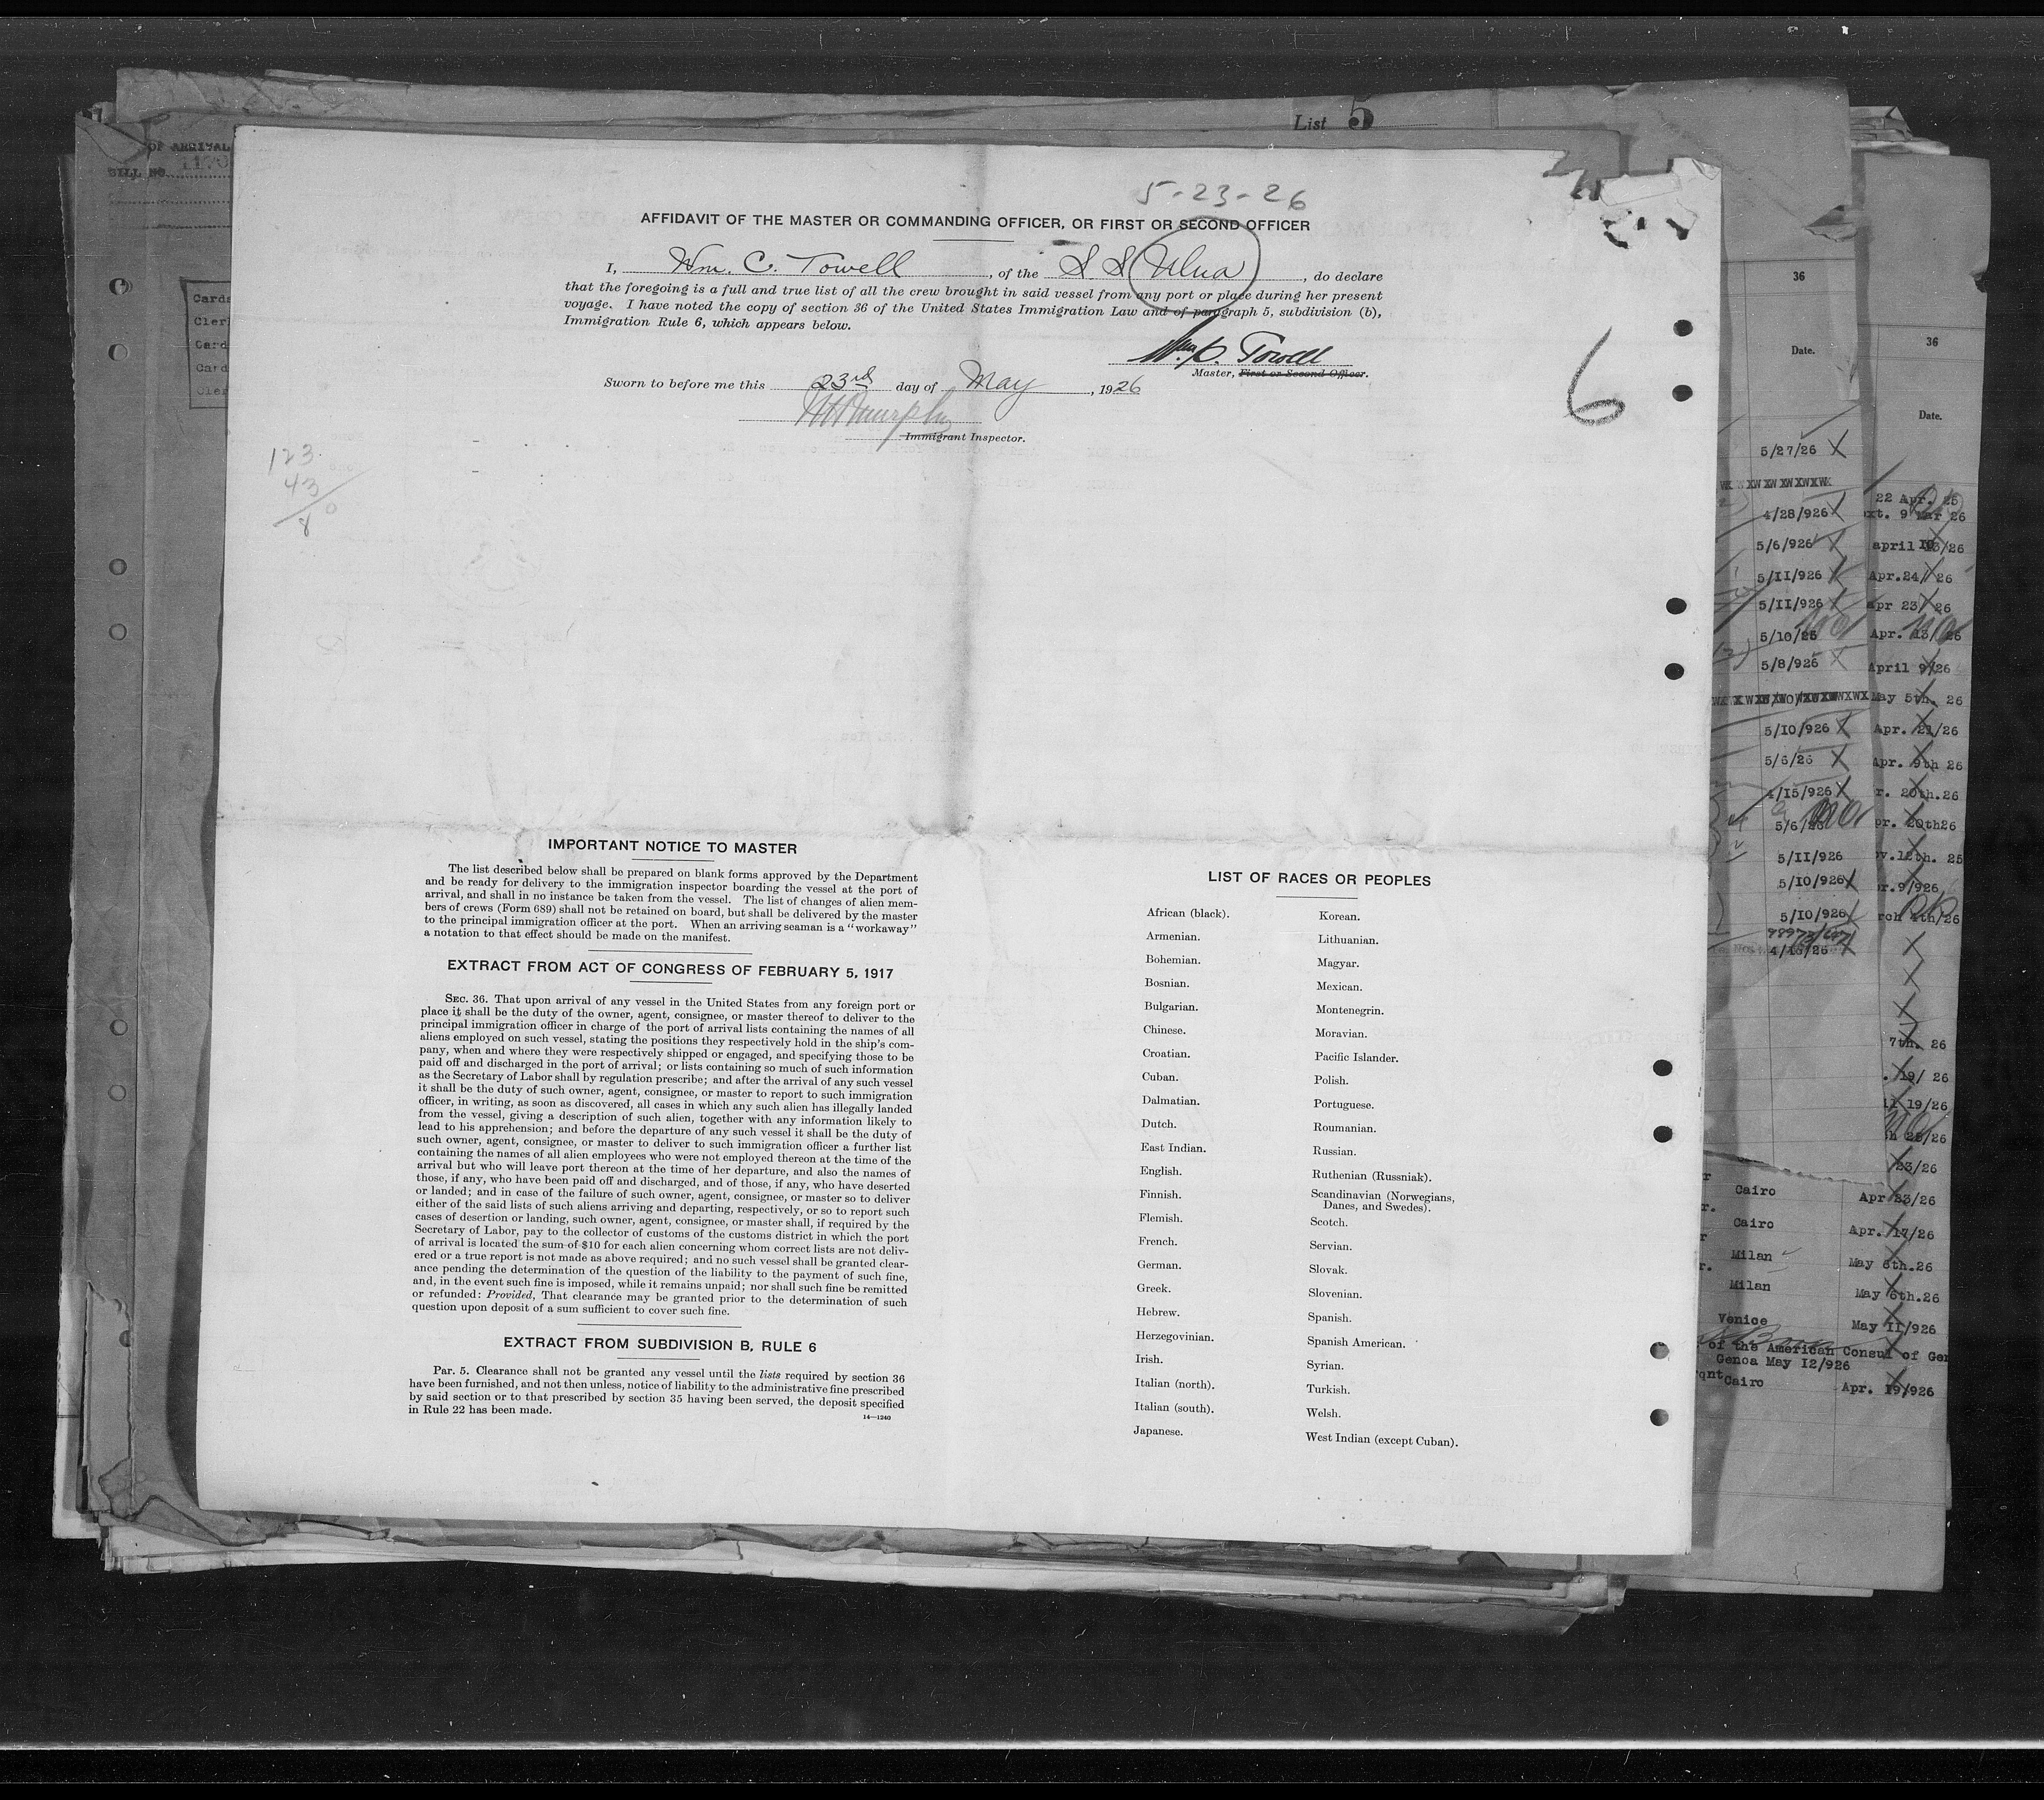 List 5
OF ARRIVAL
BILL NO.
Cards
Cler
Card
Card
Cler
5-23-26
AFFIDAVIT OF THE MASTER OR COMMANDING OFFICER, OR FIRST OR SECOND OFFICER
I, Wm. C. Towell, of the S S Ulua, do declare
that the foregoing is a full and true list of all the crew brought in said vessel from any port or place during her present
voyage. I have noted the copy of section 36 of the United States Immigration Law and of paragraph 5, subdivision (b),
Immigration Rule 6, which appears below.
Wm. C. Towell
Master, First or Second Officer.
Sworn to before me this 23rd day of May, 1926
Immigrant Inspector.
6
123
43
80
IMPORTANT NOTICE TO MASTER
The list described below shall be prepared on blank forms approved by the Department
and be ready for delivery to the immigration inspector boarding the vessel at the port of
arrival, and shall in no instance be taken from the vessel. The list of changes of alien mem-
bers of crews (Form 689) shall not be retained on board, but shall be delivered by the master
to the principal immigration officer at the port. When an arriving seaman is a "workaway"
a notation to that effect should be made on the manifest.
EXTRACT FROM ACT OF CONGRESS OF FEBRUARY 5, 1917
SEC. 36. That upon arrival of any vessel in the United States from any foreign port or
place it shall be the duty of the owner, agent, consignee, or master thereof to deliver to the
principal immigration officer in charge of the port of arrival lists containing the names of all
aliens employed on such vessel, stating the positions they respectively hold in the ship's com-
pany, when and where they were respectively shipped or engaged, and specifying those to be
paid off and discharged in the port of arrival; or lists containing so much of such information
as the Secretary of Labor shall by regulation prescribe; and after the arrival of any such vessel
it shall be the duty of such owner, agent, consignee, or master to report to such immigration
officer, in writing, as soon as discovered, all cases in which any such alien has illegally landed
from the vessel, giving a description of such alien, together with any information likely to
lead to his apprehension; and before the departure of any such vessel it shall be the duty of
such owner, agent, consignee, or master to deliver to such immigration officer a further list
containing the names of all alien employees who were not employed thereon at the time of the
arrival but who will leave port thereon at the time of her departure, and also the names of
those, if any, who have been paid off and discharged, and of those, if any, who have deserted
or landed; and in case of the failure of such owner, agent, consignee, or master so to deliver
either of the said lists of such aliens arriving and departing, respectively, or so to report such
cases of desertion or landing, such owner, agent, consignee, or master shall, if required by the
Secretary of Labor, pay to the collector of customs of the customs district in which the port
of arrival is located the sum of $10 for each alien concerning whom correct lists are not deliv-
ered or a true report is not made as above required; and no such vessel shall be granted clear-
ance pending the determination of the question of the liability to the payment of such fine,
and, in the event such fine is imposed, while it remains unpaid; nor shall such fine be remitted
or refunded: Provided, That clearance may be granted prior to the determination of such
question upon deposit of a sum sufficient to cover such fine.
EXTRACT FROM SUBDIVISION B, RULE 6
Par. 5. Clearance shall not be granted any vessel until the lists required by section 36
have been furnished, and not then unless, notice of liability to the administrative fine prescribed
by said section or to that prescribed by section 35 having been served, the deposit specified
in Rule 22 has been made.
14—1240
LIST OF RACES OR PEOPLES
African (black).
Armenian.
Bohemian.
Bosnian.
Bulgarian.
Chinese.
Croatian.
Cuban.
Dalmatian.
Dutch.
East Indian.
English.
Finnish.
Flemish.
French.
German.
Greek.
Hebrew.
Herzegovinian.
Irish.
Italian (north).
Italian (south).
Japanese.
Korean.
Lithuanian.
Magyar.
Mexican.
Montenegrin.
Moravian.
Pacific Islander.
Polish.
Portuguese.
Roumanian.
Russian.
Ruthenian (Russniak).
Scandinavian (Norwegians,
Danes, and Swedes).
Scotch.
Servian.
Slovak.
Slovenian.
Spanish.
Spanish American.
Syrian.
Turkish.
Welsh.
West Indian (except Cuban).
36
Date.
5/27/26
4/28/926
5/6/926
5/11/926
5/11/926
5/10/26
5/8/926
5/10/926
5/6/26
4/15/926
5/6/26
5/11/926
5/10/926
5/10/926
4/16/26
36
Date.
22 Apr. 26
ext. 9 Mar 26
Apr.24/ 26
apr 23/ 26
Apr. 13/ 26
April 9/26
May 5th. 26
Apr. 21/26
Apr. 9th 26
r. 20th.26
pr. 20th26
ov.12th. 25
pr.9/926
rch 4th/26
7th. 26
. 19/ 26
il 19/26
23/26
Cairo Apr 23/26
Cairo Apr. 17/26
Milan May 6th.26
Milan May 6th.26
Venice May 11/926
of the American Consul of Gen
Genoa May 12/926
Cairo Apr. 19/926